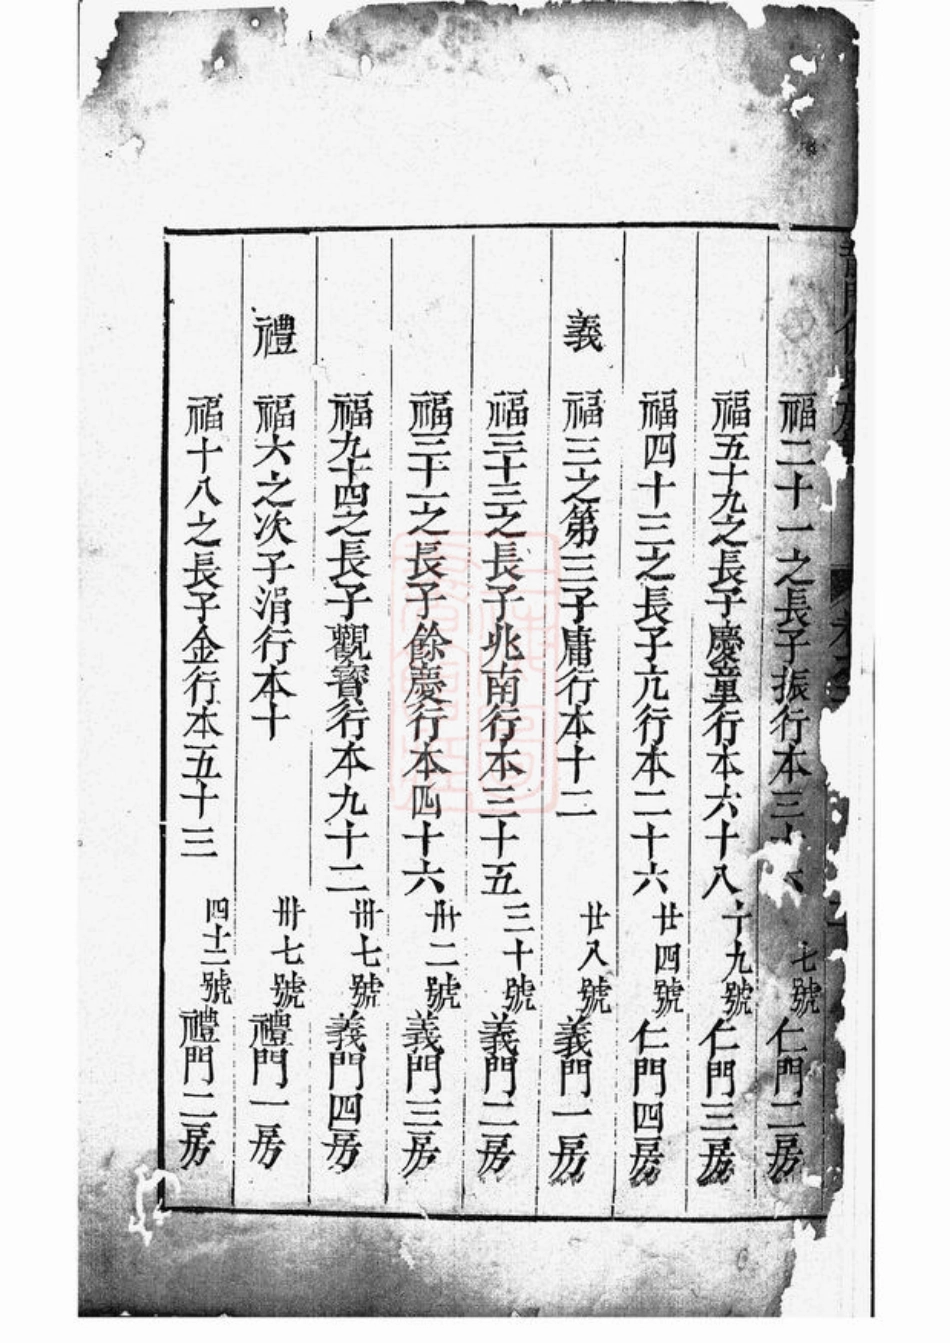 福二十一之長子振行本三十六 七號 仁門二房
福五十九之長子慶童行本六十八 十九號 仁門三房
福四十三之長子亢行本二十六 廿四號 仁門四房
義 福三之第三子庸行本十二 廿八號 義門一房
福三十三之長子兆南行本三十五 三十號 義門二房
福三十一之長子餘慶行本四十六 卅二號 義門三房
福九十四之長子觀寶行本九十二 卅七號 義門四房
禮 福六之次子涓行本十 卅七號 禮門一房
福十八之長子金行本五十三 四十二號 禮門二房